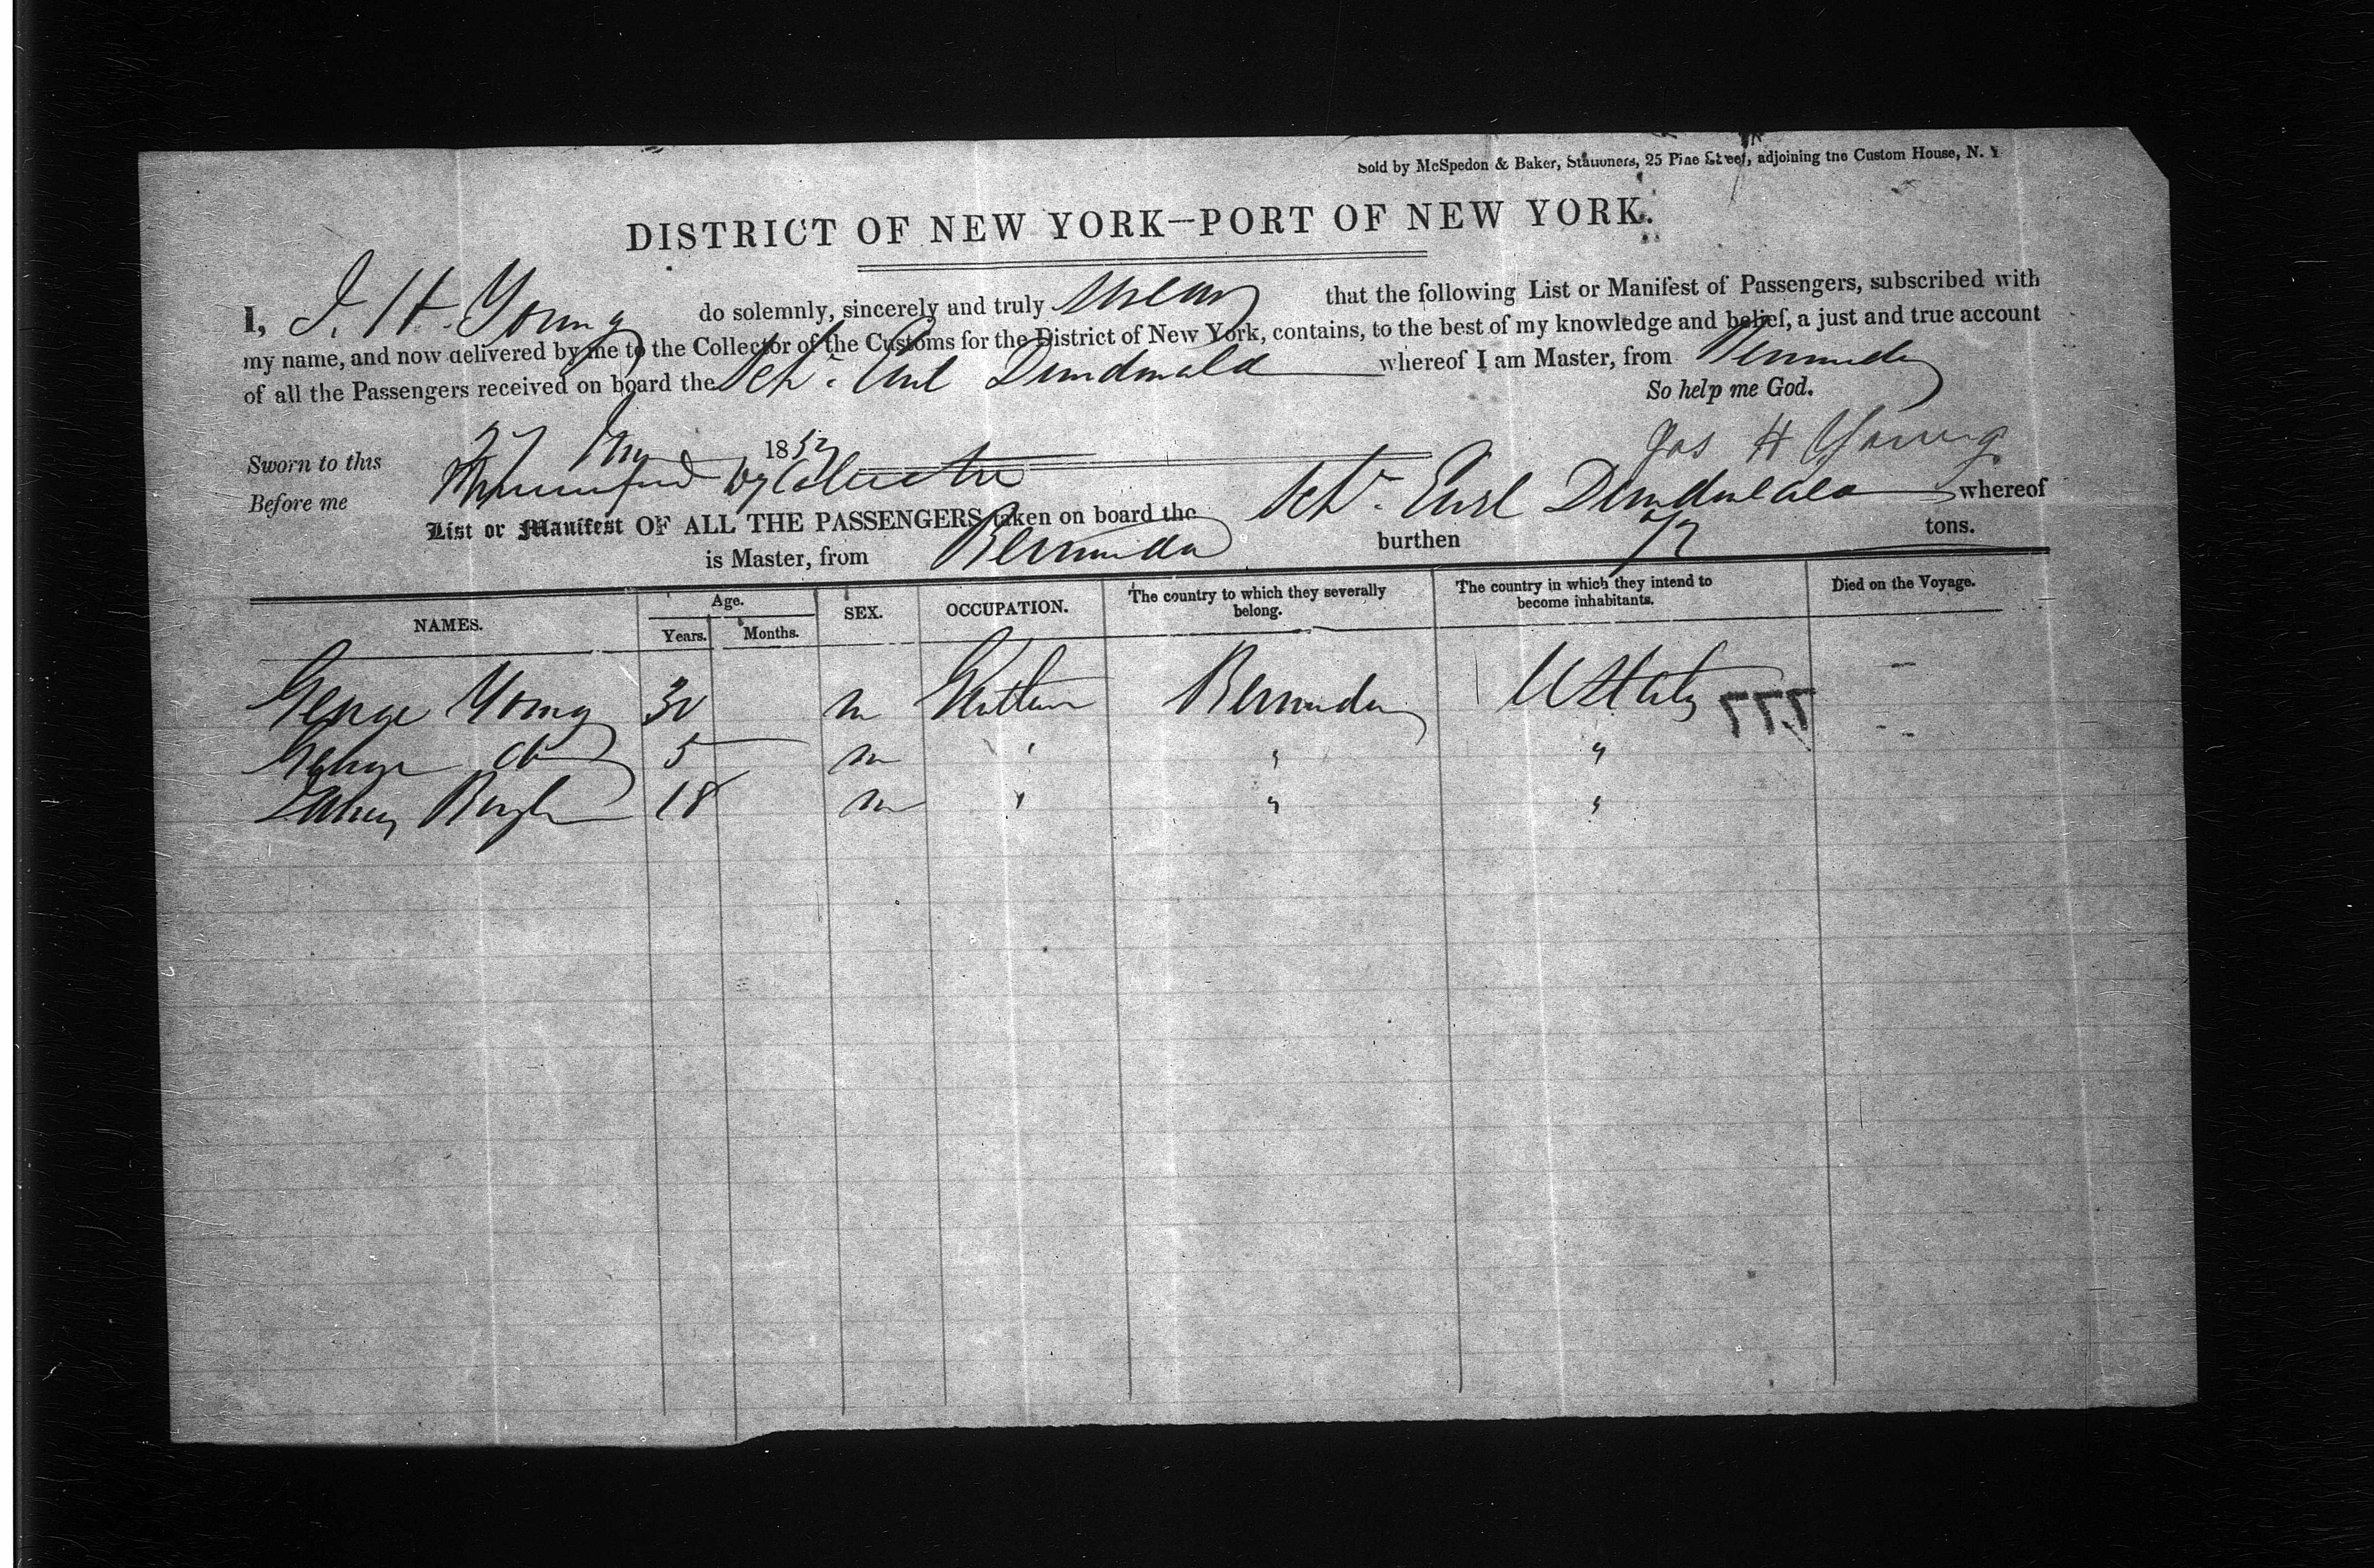 Sold by McSpedon & Baker, Stationers, 25 Pine Street, adjoining the Custom House, N. Y.
DISTRICT OF NEW YORK—PORT OF NEW YORK.
I, J. H. Young do solemnly, sincerely and truly swear that the following List or Manifest of Passengers, subscribed with
my name, and now delivered by me to the Collector of the Customs for the District of New York, contains, to the best of my knowledge and belief, a just and true account
of all the Passengers received on board the Schr. Earl Dundonald whereof I am Master, from Bermuda
So help me God.
Sworn to this 27 1852
Jas H Young
Before me Dy Collector
List or Manifest OF ALL THE PASSENGERS taken on board the Schr. Earl Dundonald whereof
is Master, from Bermuda burthen tons.
NAMES. Age. SEX. OCCUPATION. The country to which they severally belong. The country in which they intend to become inhabitants. Died on the Voyage.
Years. Months.
George Young 30 m Bermuda U States -
777
George do 5 m " " " - -
18 m " " "